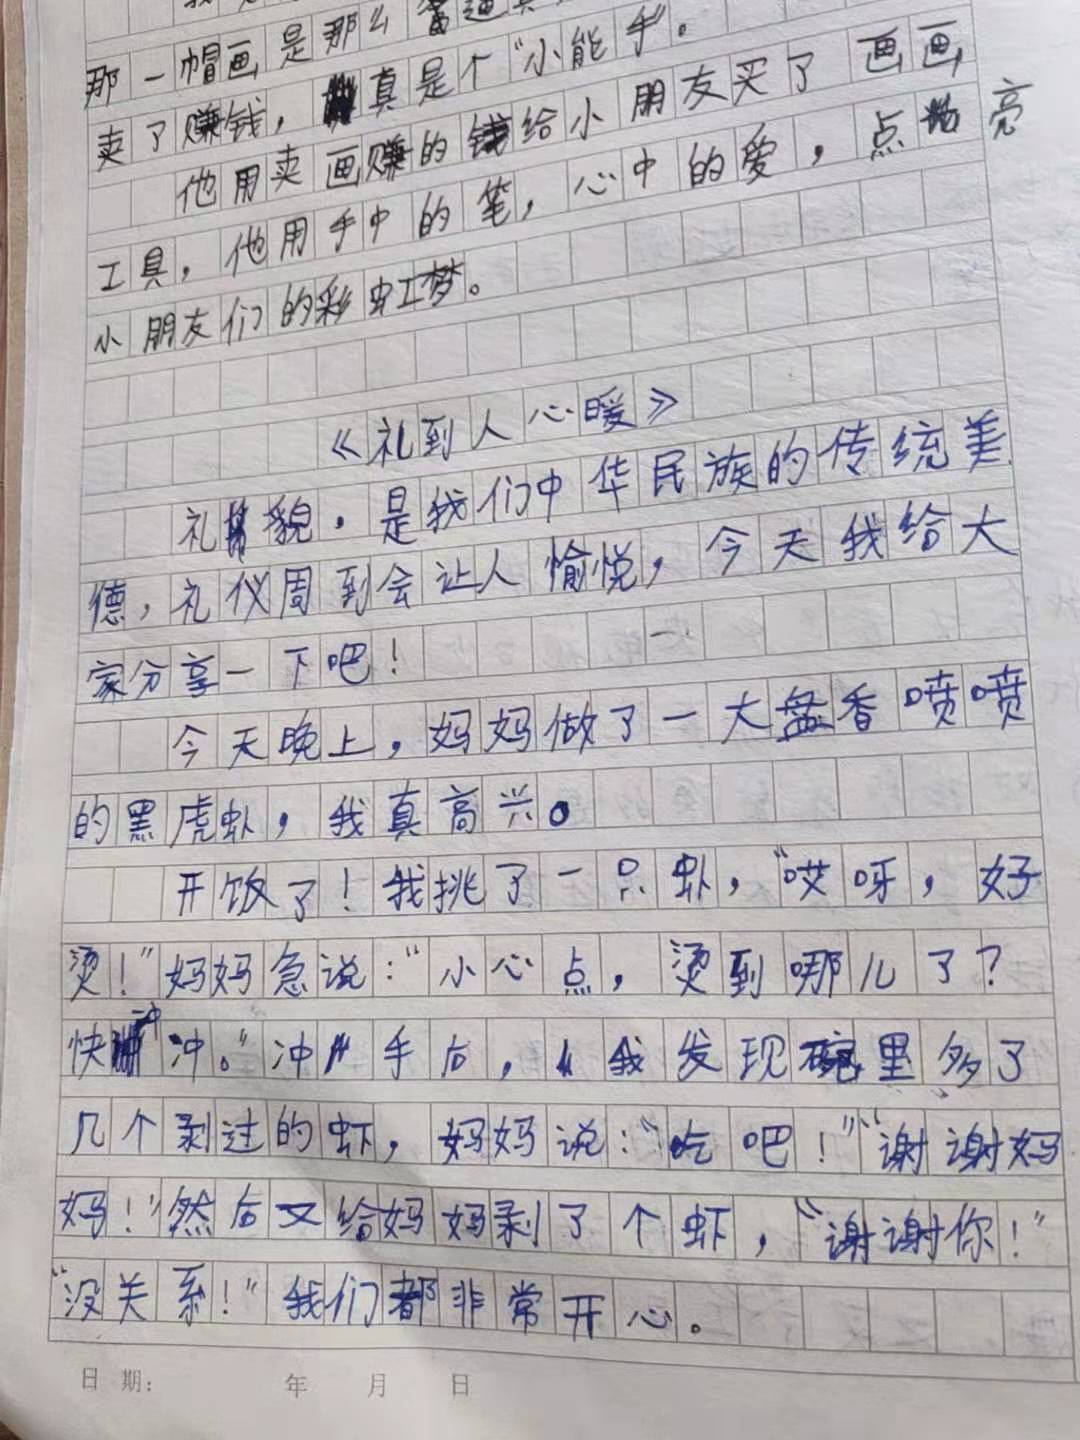 那一帽画是那么
卖了赚钱，真是个“小能手。
他用卖画赚的钱给小朋友买了画画
工具，他用手中的笔，心中的爱，点亮
小朋友们的彩虹梦。
《礼到人心暖》
礼貌，是我们中华民族的传统美
德，礼仪周到会让人愉悦，今天我给大
家分享一下吧！
今天晚上，妈妈做了一大盘香喷喷
的黑虎虾，我真高兴。
开饭了！我挑了一只虾，“哎呀，好
烫！”妈妈急说：“小心点，烫到哪儿了？
快冲冲。”冲手后，我发现碗里多了
几个剥过的虾，妈妈说：“吃吧！”“谢谢妈
妈！”然后又给妈妈剥了个虾，“谢谢你！”
“没关系！”我们都非常开心。
日期：　年　月　日